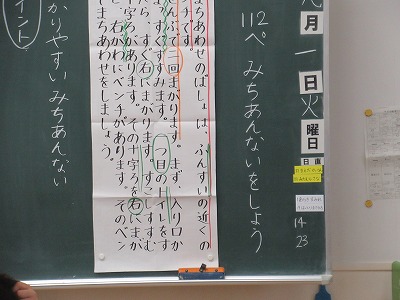 月一日火曜日
日直
14
23
112ペ みちあんないをしよう
まちあわせのばしょは、ふんすいの近くの
チです。
ぜんぶで二回まがります。まず、入り口か
まっすぐすすみます。一つ目のトイレをす
たら、すぐ右にまがります。すこしすすむ
十字ろがあります。その十字ろを右にまが
と、右がわにベンチがあります。そのベン
でまちあわせをしましょう。
イント
かりやすいみちあんない